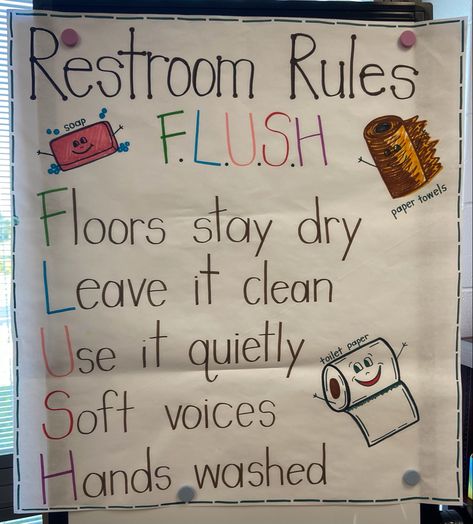 Restroom Rules
soap
F.L.U.S.H
paper towels
Floors stay dry
Leave it clean
Use it quietly
toilet paper
Soft voices
Hands washed